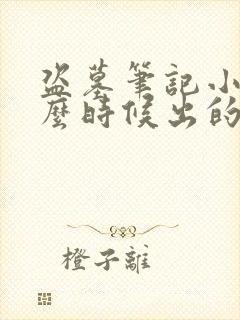 盗墓筆記小
麼時候出的
橙子離